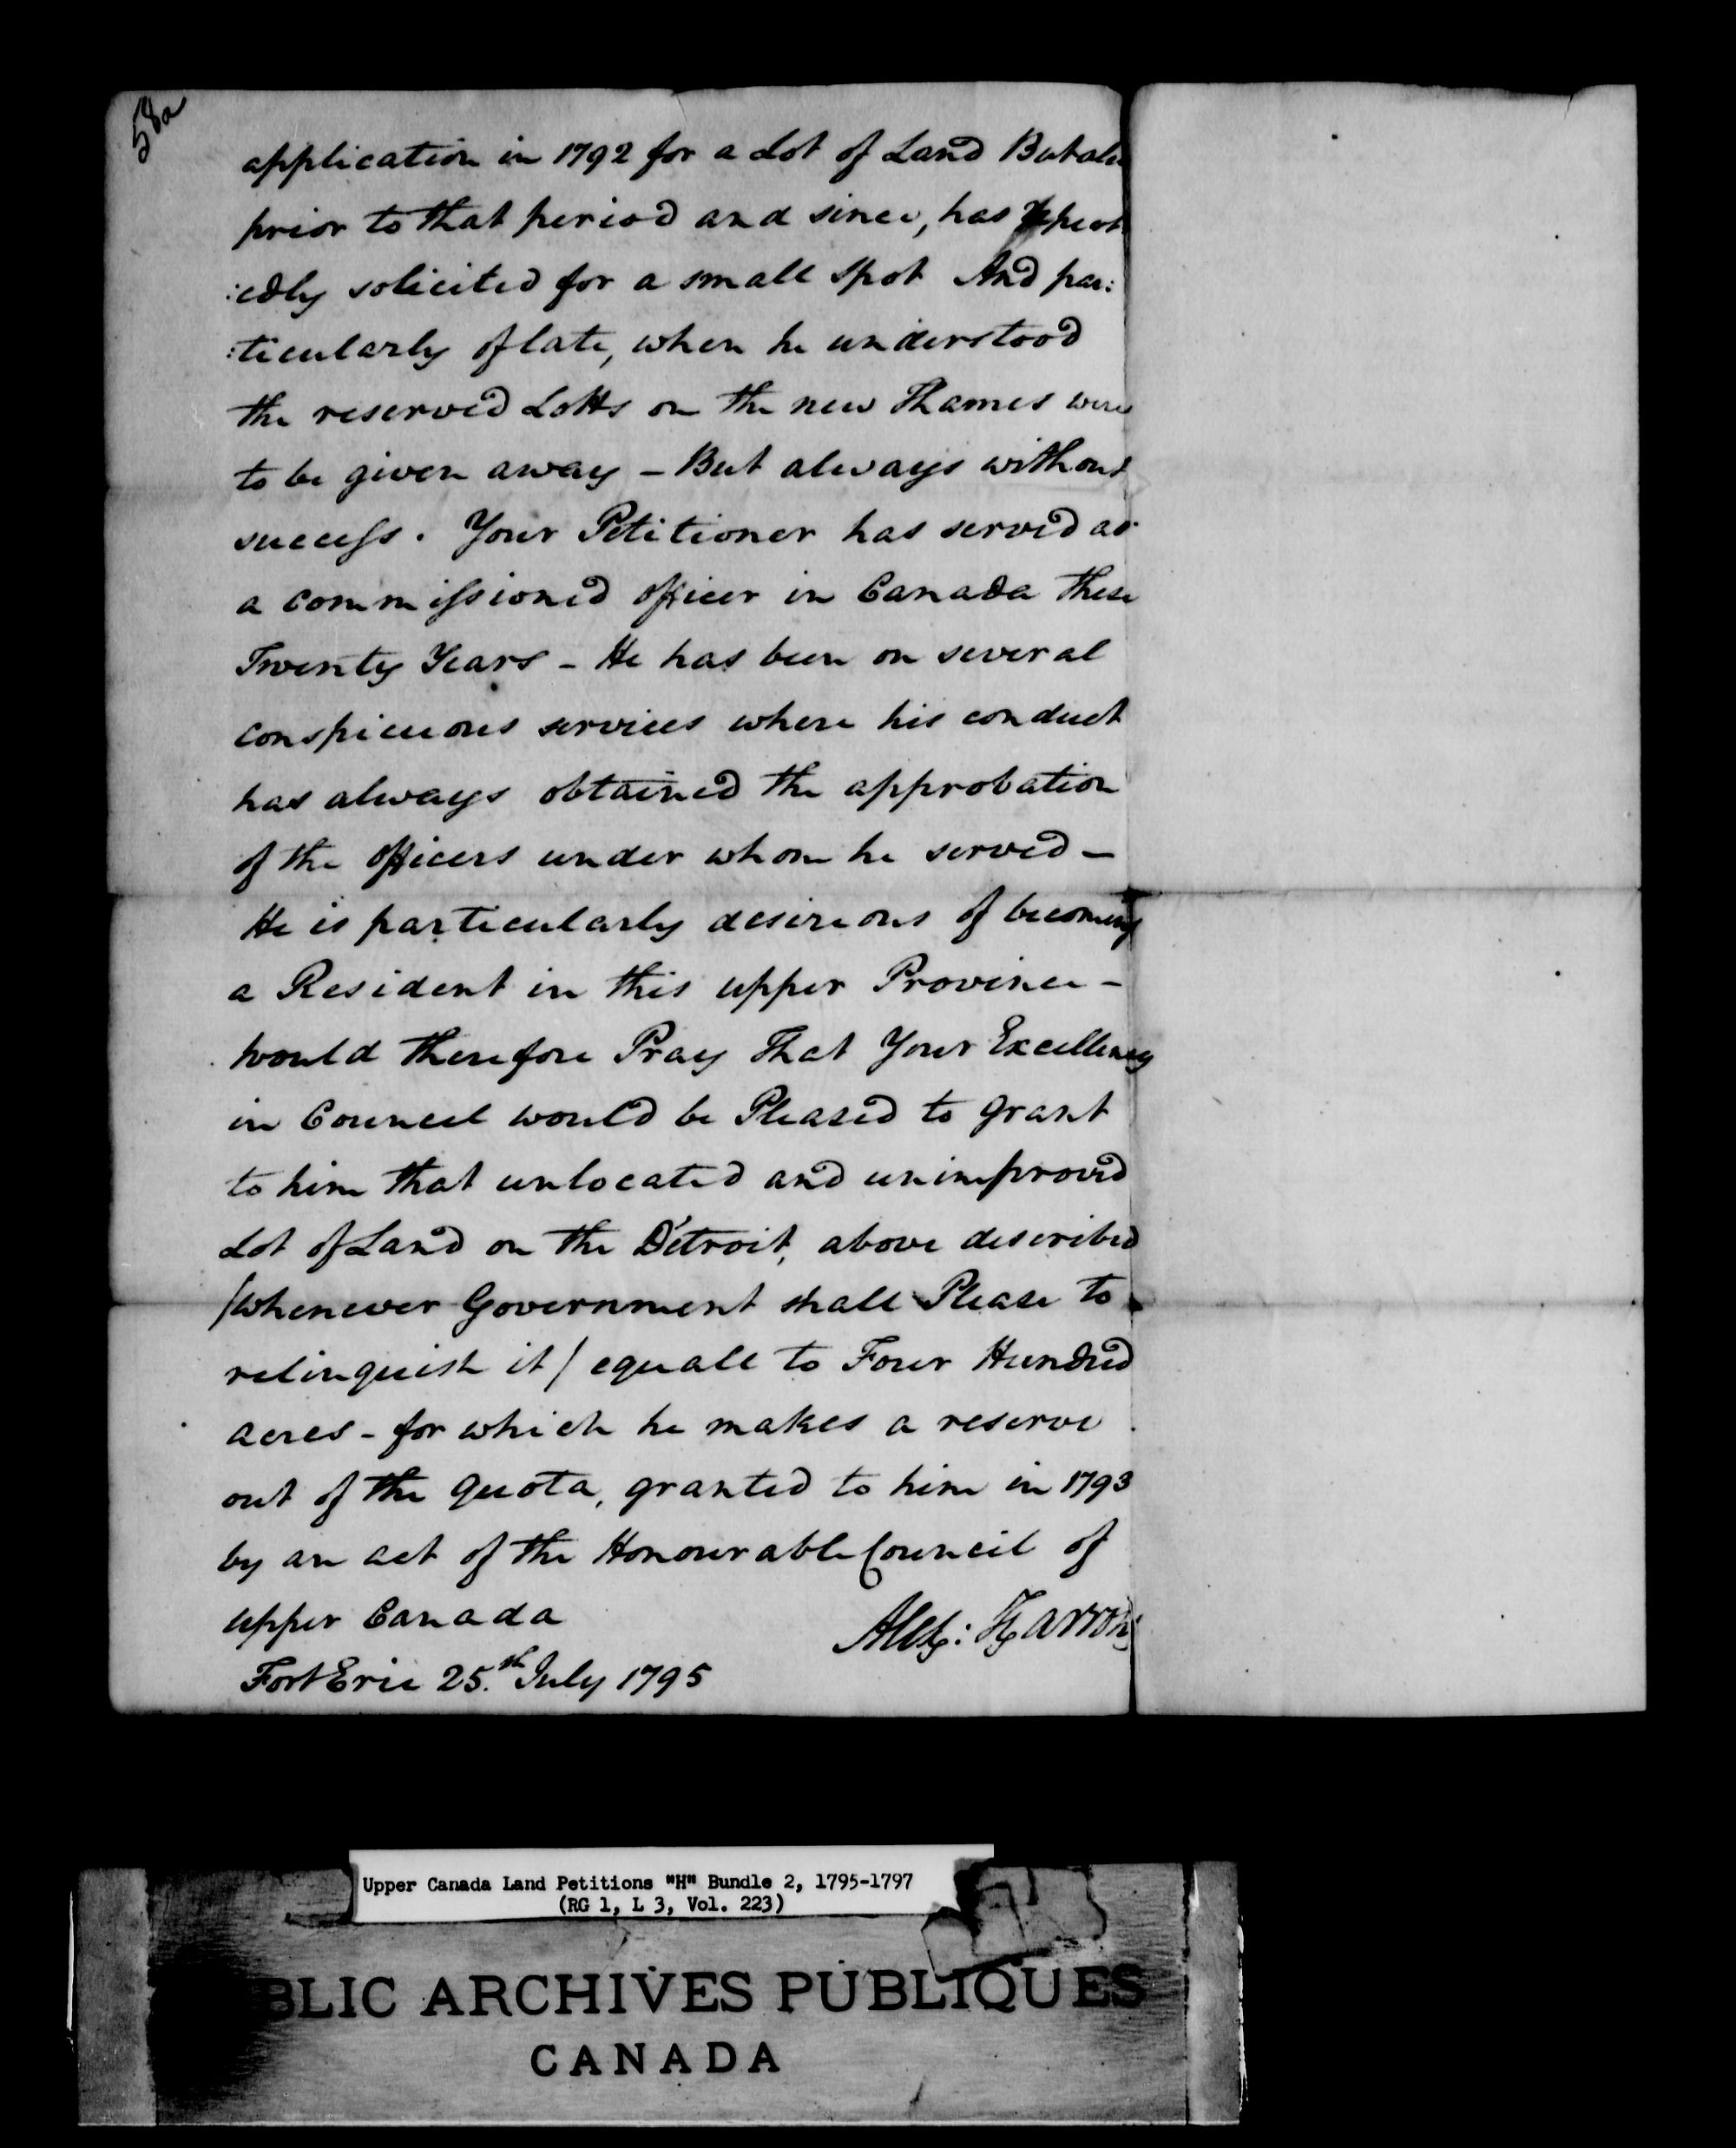 58a
application in 1792 for a Lot of Land But also
prior to that period and since, has repeat
:edly solicited for a small spot And par:
:ticularly of late, when he understood
the reserved Lotts on the new Thames were
to be given away - But always without
success. Your Petitioner has served as
a commissioned officer in Canada these
Twenty Years - He has been on several
conspicuous services where his conduct
has always obtained the approbation
of the officers under whom he served -
He is particularly desireous of becoming
a Resident in this upper Province -
would therefore Pray That Your Excellency
in Council would be Pleased to grant
to him that unlocated and unimproved
Lot of Land on the Détroit, above described
/whenever Government shall Please to
relinquish it/ equall to Four Hundred
acres - for which he makes a reserve
out of the quota, granted to him in 1793
by an act of the Honourable Council of
upper Canada
Alex: Harrow
Fort Erie 25.th July 1795
Upper Canada Land Petitions "H" Bundle 2, 1795-1797
(RG 1, L 3, Vol. 223)
BLIC ARCHIVES PUBLIQUES
CANADA